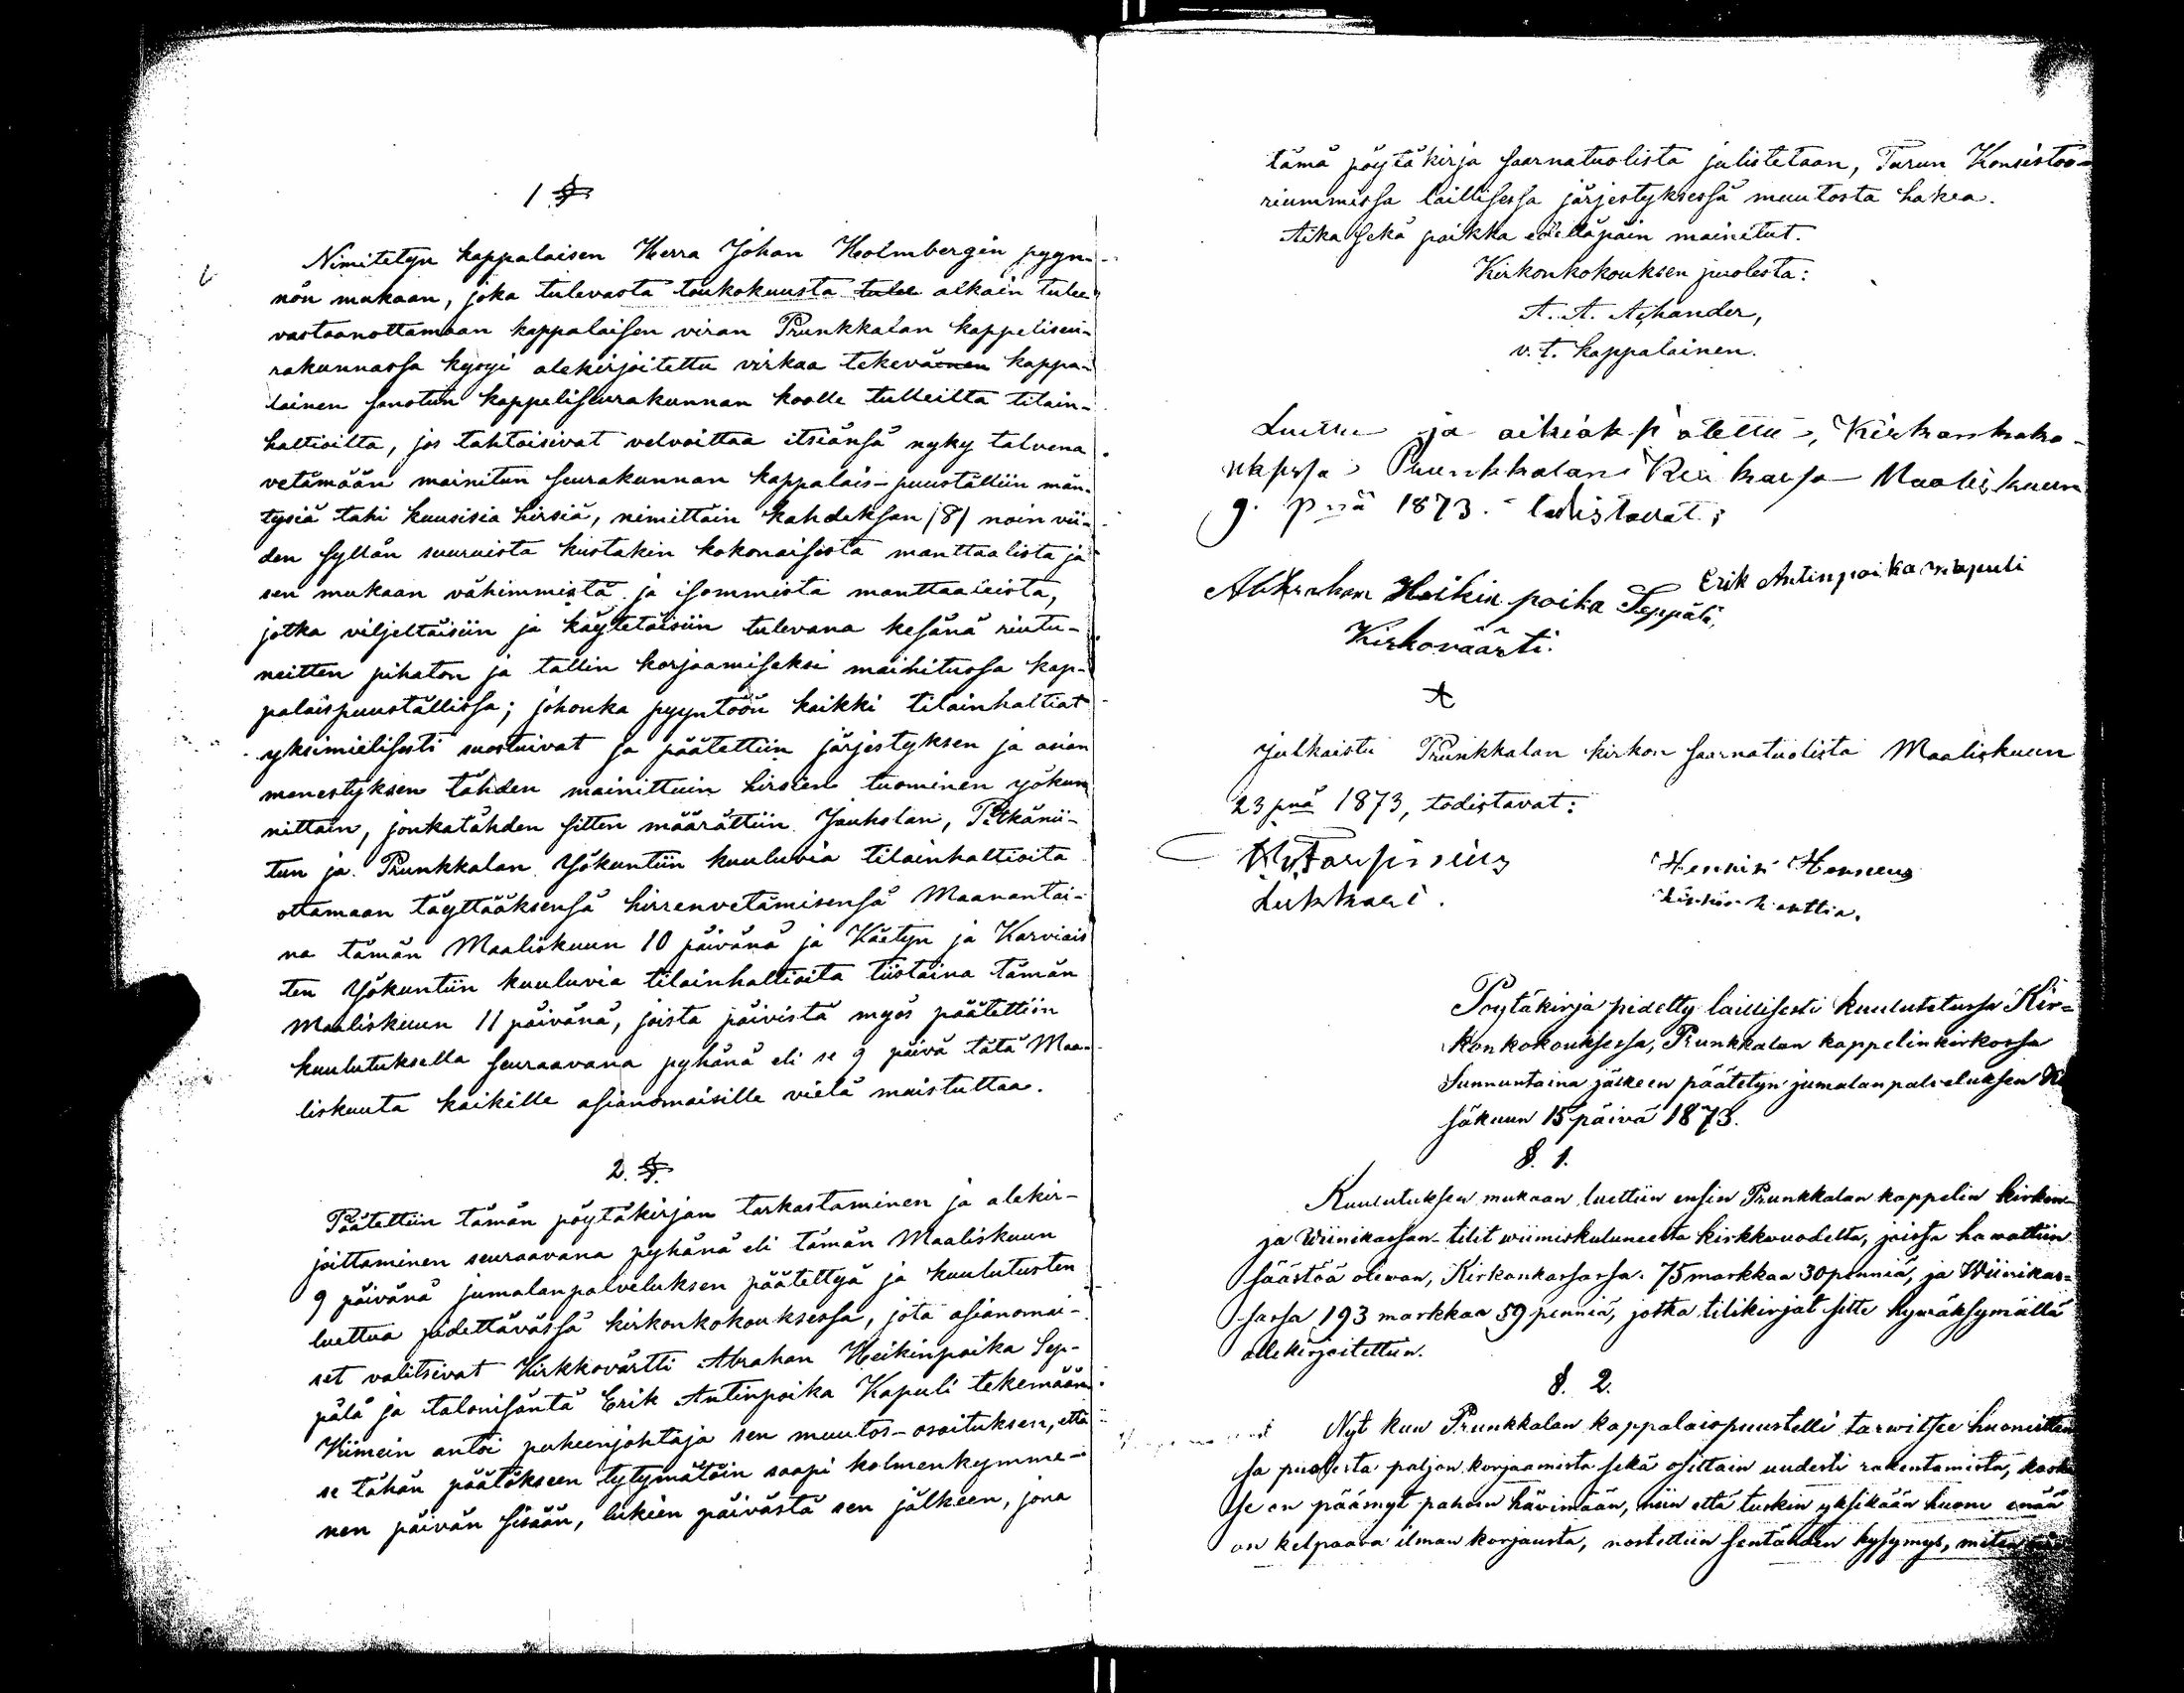 1 §
Nimitetyn kappalaisen Herra Johan Holmbergin pyyn-
nön mukaan, joka tulevasta toukokuusta tulee alkain tulee
vastaanottamaan kappalaisen viran Prunkkalan kappeliseu-
rakunnassa kysyi alekirjoitettu virkaa tekevä kappa-
lainen sanotun kappeliseurakunnan koolle tulleilta tilain-
haltioilta, jos tahtoisivat velvoittaa itsiänsä nyky talvena
vetämään mainitun seurakunnan kappalais-puuställiin män-
tysiä tahi kuusisia hirsiä, nimittäin kahdeksan (8) noin vii-
den syllän suuruista kustakin kokonaisesta manttaalista ja
sen mukaan vähimmistä ja isommista manttaaleista,
jotka viljeltäisiin ja käytetäisiin tulevana kesänä riutu-
neitten pihaton ja tallin korjaamiseksi mainitussa kap-
palaispuuställissa; johonka pyyntöön kaikki tilainhaltiat
yksimielisesti suostuivat ja päätettiin järjestyksen ja asian
menestyksen tähden mainittuin hirsien tuominen yökun
nittain, jonkatähden sitten määrättiin Jauholan, Pitkänii-
tun ja Prunkkalan Yökuntiin kuuluvia tilainhaltioita
ottamaan täyttääksensä hirrenvetämisensä Maanantai-
na tämän Maaliskuun 10 päivänä ja Käetyn ja Karviais
ten Yökuntiin kuuluvia tilainhaltioita tiistaina tämän
Maaliskuun 11 päivänä, joista päivistä myös päätettiin
kuulutuksella seuraavana pyhänä eli se 9 päivä tätä Maa-
liskuuta kaikille asianomaisille vielä muistuttaa.
2. §.
Päätettiin tämän pöytäkirjan tarkastaminen ja alekir-
joittaminen seuraavana pyhänä eli tämän Maaliskuun
9 päivänä jumalanpalveluksen päätettyä ja kuulutusten
luettua pidettävässä kirkonkokouksessa, jota asianomai-
set valitsivat Kirkkovärtti Abraham Heikinpoika Sep-
pälä ja talonisäntä Erik Antinpoika Kapuli tekemään.
Viimein antoi puheenjohtaja sen muutos-osoituksen, että
se tähän päätökseen tytymätöin saapi kolmenkymme-
nen päivän sisään, lukien päivästä sen jälkeen, jona
tämä pöytäkirja saarnatuolista julistetaan, Turun Konsistoo-
riummissa laillisessa järjestyksessä muutosta hakea.
Aika sekä paikka edelläpäin mainitut.
Kirkonkokouksen puolesta:
A. A. Ashander,
v. t. kappalainen.
Luettu ja oikiaksi Kirkonkoko-
uksessa Prunkkalan Kirkossa Maaliskuun
9. pnä 1873. todistavat:
Abraham Heikin poika Seppälä,
Erik Antinpoika Kapuli
Kirkoväärti.
Julkaistu Prunkkalan kirkon saarnatuolista Maaliskuun
23 pnä 1873, todistavat:
Lukkari.
Pöytäkirja pidetty laillisesti kuulutetussa Kir-
konkokouksessa, Prunkkalan kappelinkirkossa
Sunnuntaina jälkeen päätetyn jumalanpalveluksen Ke
säkuun 15 päivä 1873.
§. 1.
Kuulutuksen mukaan luettiin ensin Prunkkalan kappelin kirkon-
ja Wiinikassan-tilit wiimiskuluneelta kirkkovuodelta, joissa hawattiin
säästöä olewan, Kirkonkassassa. 75 markkaa 30 penniä, ja Wiinikas-
sassa 193 markkaa 59 penniä, jotka tilikirjat sitte hywäksymällä
allekirjoitettiin.
§. 2.
Nyt kun Prunkkalan kappalaispuustelli tarwitsee huoneittan
sa puolesta paljon korjaamista sekä osittain uudesti rakentamista, koska
se on päämyt pahoin häwimään, niin että tuskin yksikään huone enää
on kelpaava ilman korjausta, nostettiin sentähden kysymys, miten